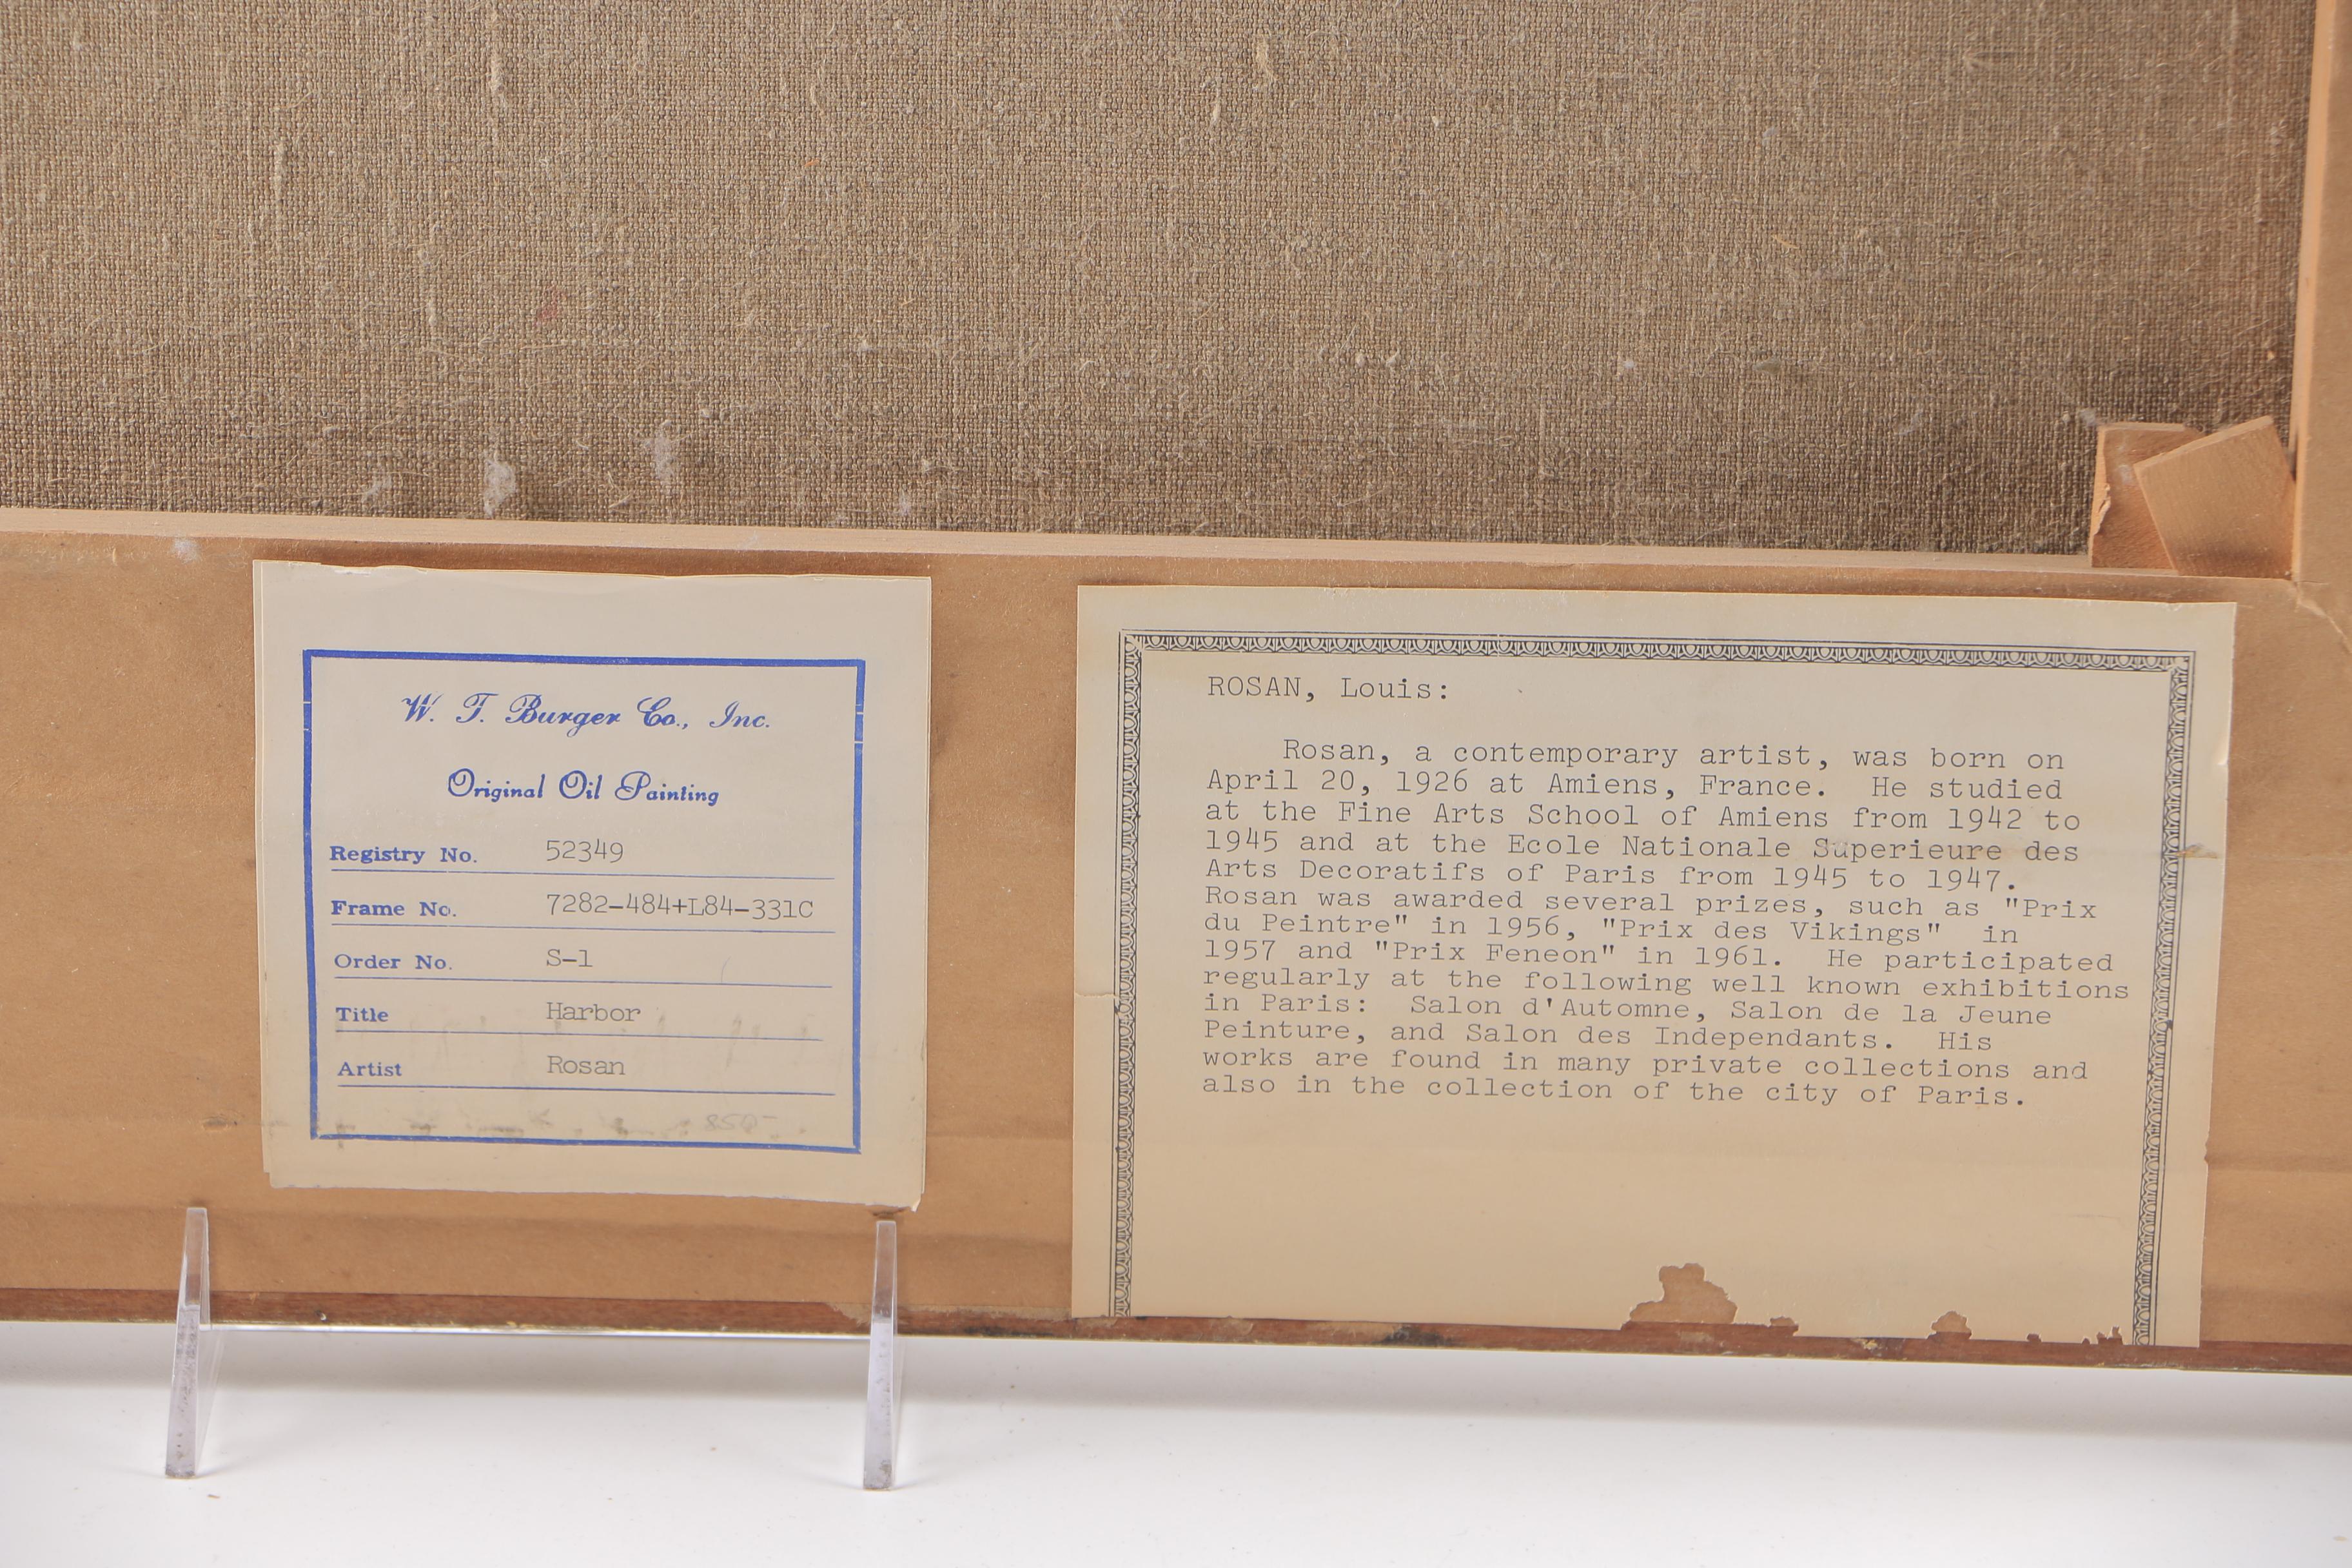 W. T. Burger Co., Inc.
Original Oil Painting
Registry No. 52349
Frame No. 7282-484+L84-331C
Order No. S-1
Title Harbor
Artist Rosan
ROSAN, Louis:
Rosan, a contemporary artist, was born on
April 20, 1926 at Amiens, France. He studied
at the Fine Arts School of Amiens from 1942 to
1945 and at the Ecole Nationale Superieure des
Arts Decoratifs of Paris from 1945 to 1947.
Rosan was awarded several prizes, such as "Prix
du Peintre" in 1956, "Prix des Vikings" in
1957 and "Prix Feneon" in 1961. He participated
regularly at the following well known exhibitions
in Paris: Salon d'Automne, Salon de la Jeune
Peinture, and Salon des Independants. His
works are found in many private collections and
also in the collection of the city of Paris.